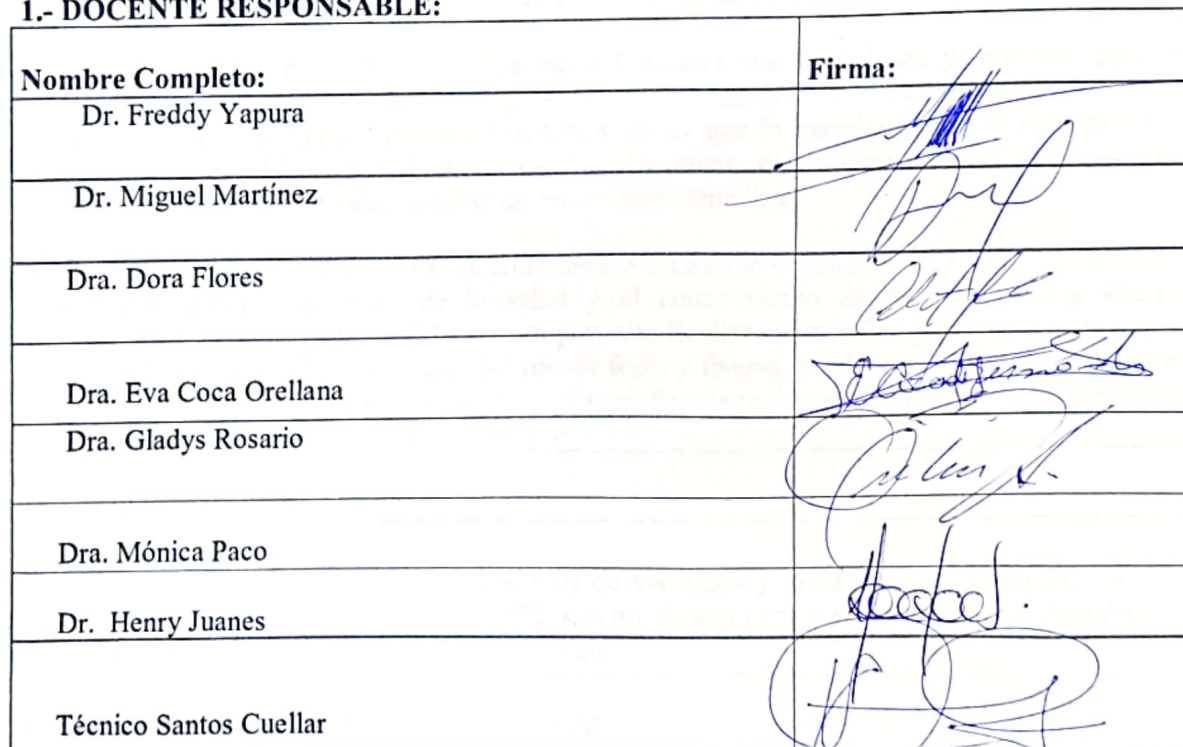 1.- DOCENTE RESPONSABLE:
Nombre Completo: Firma:
Dr. Freddy Yapura
Dr. Miguel Martínez
Dra. Dora Flores
Dra. Eva Coca Orellana
Dra. Gladys Rosario
Dra. Mónica Paco
Dr. Henry Juanes
Técnico Santos Cuellar